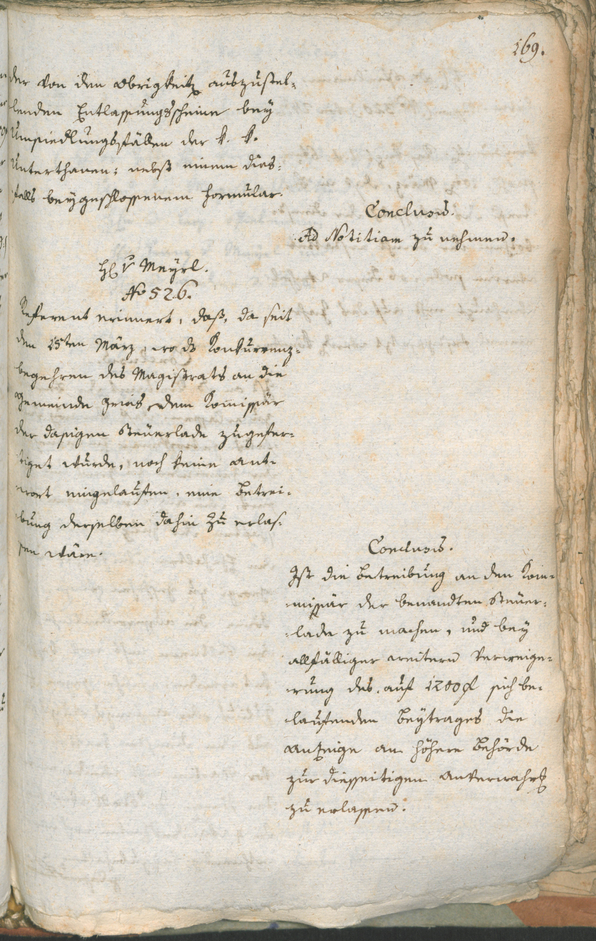 169.
der von den Obrigkeit auszustel-
lenden Entlassungsscheine bey
Umsiedlungsfällen der k. k.
Unterthanen; nebst einem dies-
falls beygeschlossenem Formular.
Conclusis.
Ad Notitiam zu nehmen.
H. v Meyrl.
No 526.
Referent erinnert, daß, da seit
dem 15ten März, wo ds Konkurrenz-
begehren des Magistrats an die
Gemeinde dem Komissär
der dasigen Steuerlade zugefer-
tiget wurde, noch keine Ant-
wort eingelaufen, eine Betrei-
bung derselben dahin zu erlas-
sen wäre.
Conclusis.
Ist die Betreibung an den Kom-
missär der benandten Steuer-
lade zu machen, und bey
allfälliger weitern Verweige-
rung des auf 1200 fl sich be-
laufenden Beytrages die
Anzeige an höhere Behörde
zur diesseitigen Anverwahrg
zu erlassen.